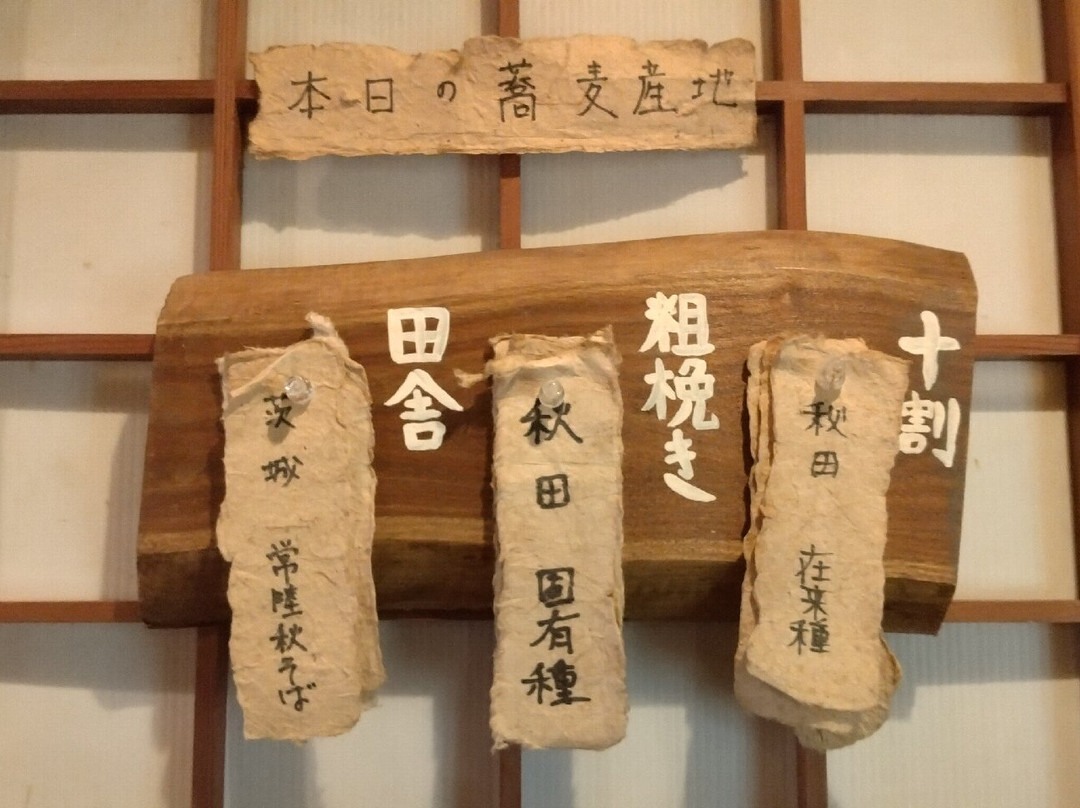 本日の蕎麦産地
十割
秋田 在来種
粗挽き
秋田 固有種
田舎
茨城 常陸秋そば